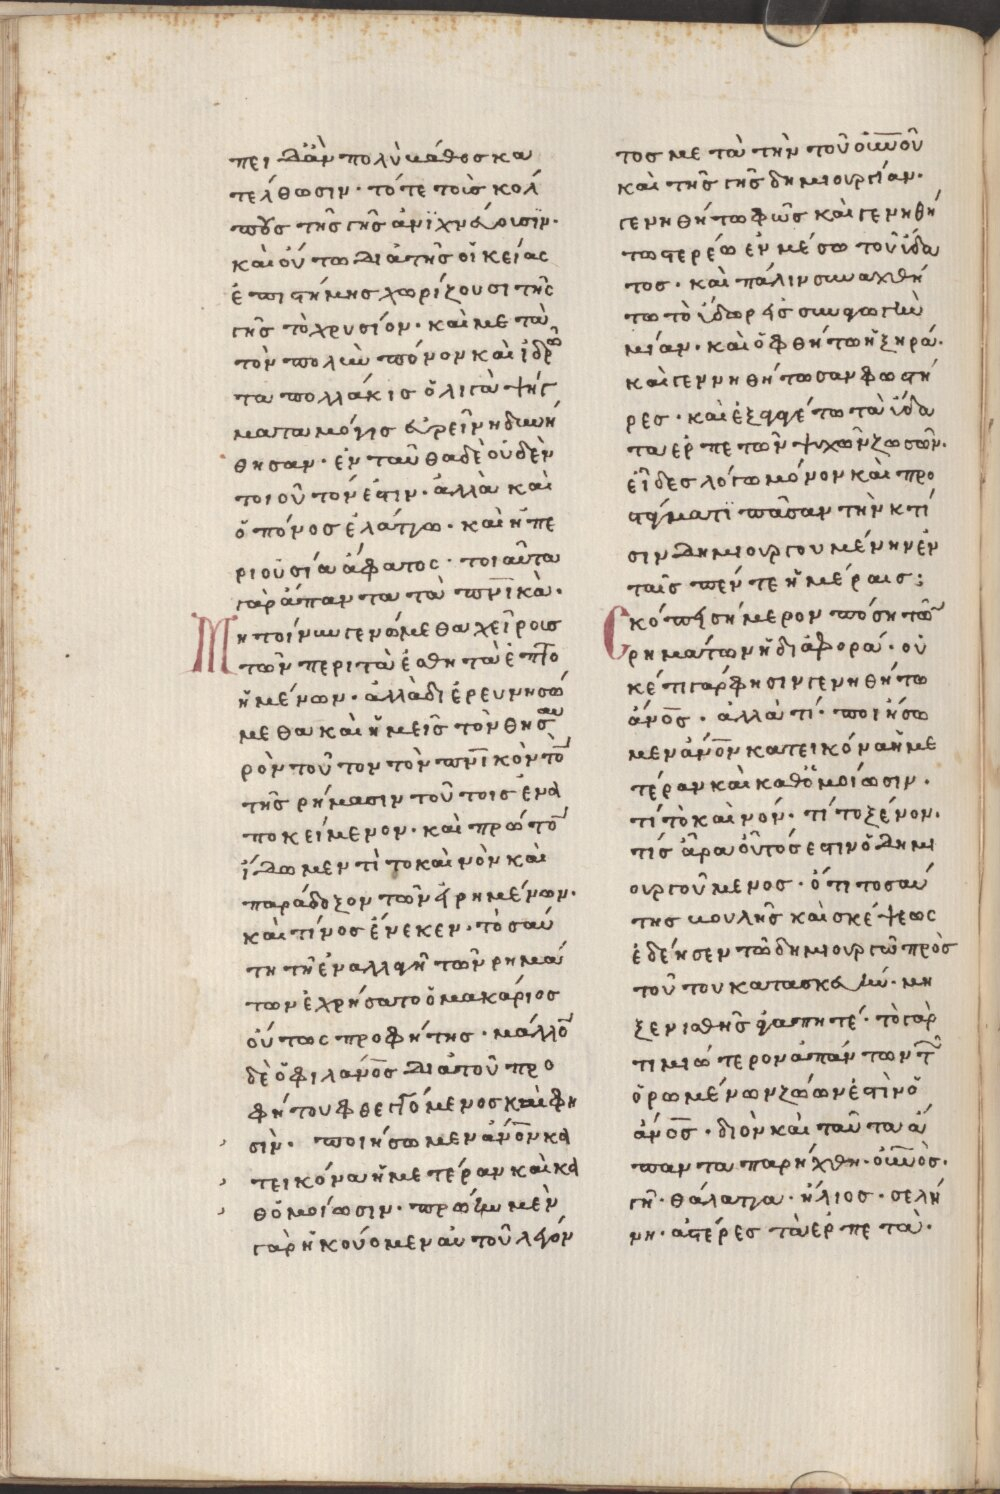 πειδὰν πολὺ βάθος κα
τέλθωσιν· τότε τοῖς κόλ
ποις τῆς γῆς ἀνϊχνεύουσϊν·
καὶ οὕτω διὰ τῆς οἰκείας
ἐπιστήμης χωρίζουσι τῆς
γῆς τὸ χρυσίον· καὶ μετὰ
τὸν πολὺν πόνον καὶ ἱδρῶ
τα πολλάκις ὀλίγα ψήγ
ματα μόγις εὑρεῖν ἠδυνή
θησαν· ἐνταῦθα δὲ οὐδὲν
τοιοῦτόν ἐστιν· ἀλλὰ καὶ
ὁ πόνος ἐλάττω· καὶ ἡ πε
ριουσία ἄφατος· τοιαῦτα
γὰρ ἅπαντα τὰ πνικὰ·
Μὴ τοίνυν γενώμεθα χείροις
τῶν περὶ τὰ αἰσθητὰ ἐπτο
ημένων· ἀλλὰ διερευνησώ
μεθα καὶ ἡμεῖς τὸν θησαυ
ρὸν τοῦτον τὸν πνικὸν τὸ
τῆς ρήμασιν τούτοις ἐνα
ποκείμενον· καὶ πρῶτο
ἴδωμεν τί τὸ καινὸν καὶ
παράδοξον τῶν εἰρημένων·
καὶ τίνος ἕνεκεν· τοσαύ
τη τῆ ἐναλλαγῆ τῶν ρημά
των ἐχρήσατο ὁ μακάριος
οὗτως προφήτης· μᾶλλο
δὲ ὁ φιλάνος διὰ τοῦ προ
φήτου φθεγγόμενος καὶ φη
σὶν· ποιήσωμεν ἄνον κα
τ εἰκόνα ἡμετέραν καὶ κα
θ ὁμοίωσιν· πρώην μὲν
γὰρ ἠκούομεν αὐτοῦ λέγον
τος μετὰ τὴν τοῦ οὐνοῦ
καὶ τῆς γῆς δημιουργίαν·
γενηθήτω φῶς καὶ γενηθή
τω στερέω ἐν μέσω τοῦ ὕδα
τος· καὶ πάλιν συναχθή
τω τὸ ὕδωρ εἰς συναγωγὴν
μίαν· καὶ ὀφθήτω ἡ ξηρά·
καὶ γεννηθήτωσαν φωστῆ
ρες· καὶ ἐξαγαγέτω τὰ ὕδα
τα ἑρπετῶν ψυχῶν ζωσῶν·
εἶδες λόγω μόνον καὶ προ
στάγματϊ πᾶσαν τὴν κτί
σιν δημιουργουμένην ἐν
ταῖς πέντε ἡμέραις:
Σκόπει σήμερον πόση τῶ
ρημάτων ἡ διαφορά· οὐ
κέτι γὰρ φησὶν γενηθήτω
ἄνος· ἀλλὰ τί· ποιήσω
μεν ἄνον κατ εἰκόνα ἡμε
τέραν καὶ καθ ὁμοίωσιν·
τί τὸ καινόν· τί τὸ ξένον·
τίς ἄρα οὗτός ἐστιν ὁ δημι
ουργούμενος· ὅτι τοσαύ
της βουλῆς καὶ σκέψεως
ἐδέησεν τῶ δημιουργῶ πρὸς
τούτου κατασκευήν· μὴ
ξενισθῆς ἀγαπητέ· τὸ γὰρ
τιμιώτερον ἁπάντων τῶ
ὁρωμένων ζώων ἐστὶν ὁ
ἄνος· δι ὃν καὶ ταῦτα ἅ
παντα παρήχθη· οὐνὸς·
γῆ· θάλαττα· ἥλιος· σελή
νη· ἀστέρες τὰ ἑρπετὰ·